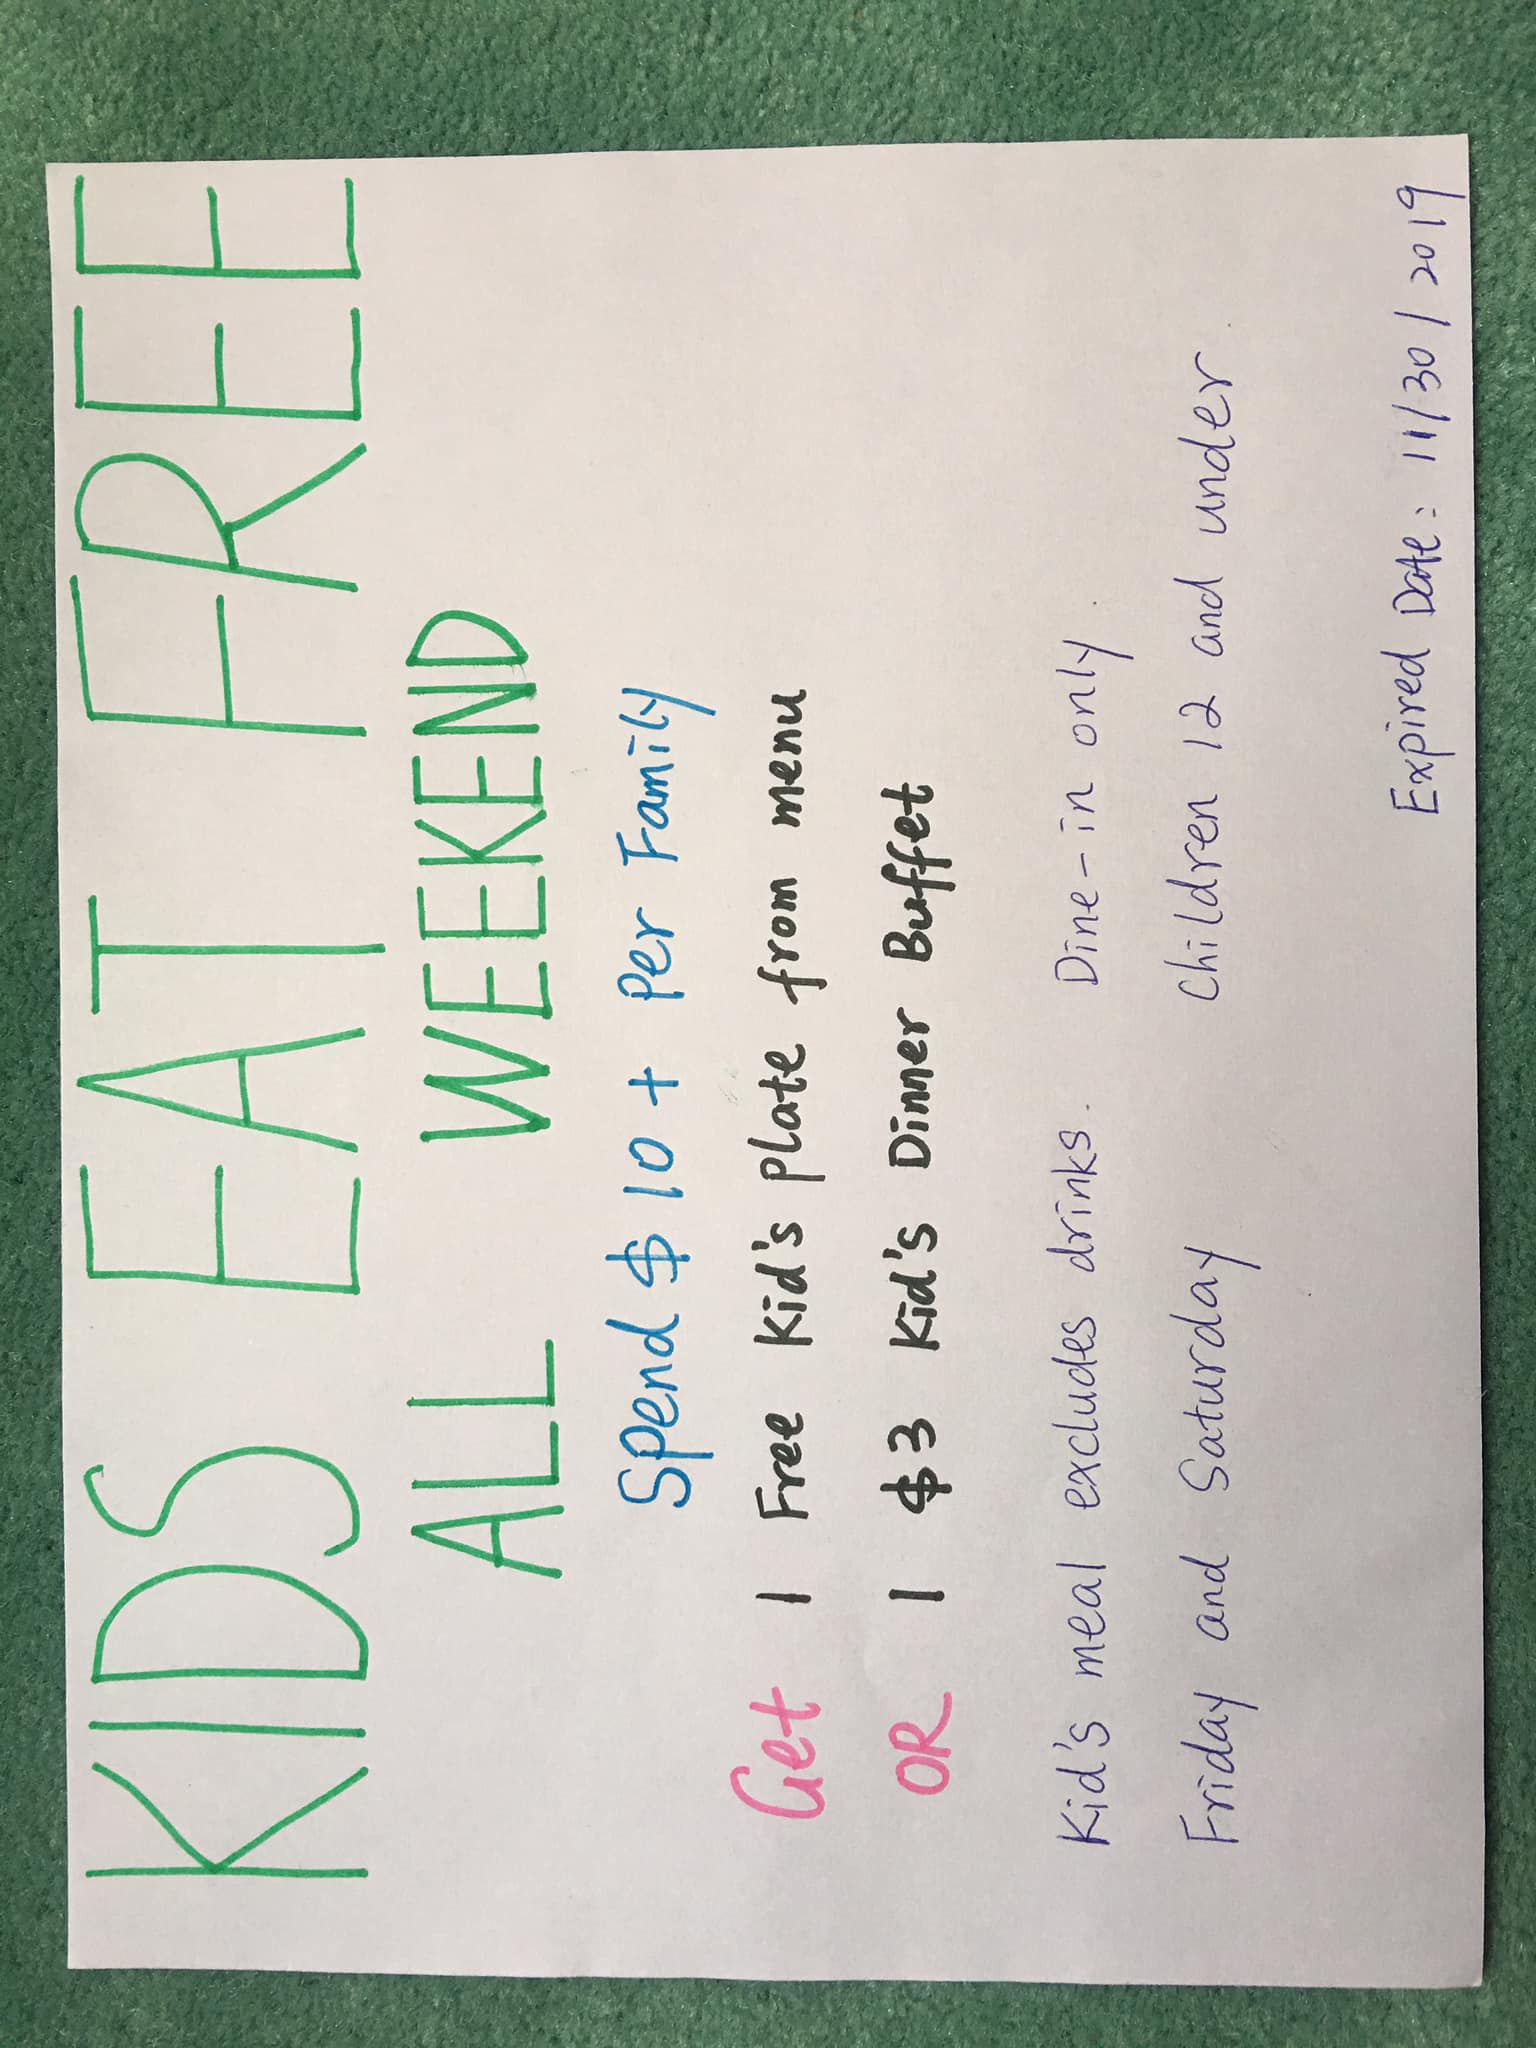 KIDS EAT FREE
ALL WEEKEND
Spend $10 + Per Family
Get 1 Free Kid's plate from menu
OR 1 $3 Kid's Dinner Buffet
Kid's meal excludes drinks. Dine-in only.
Friday and Saturday Children 12 and under.
Expired Date: 11/30/2019